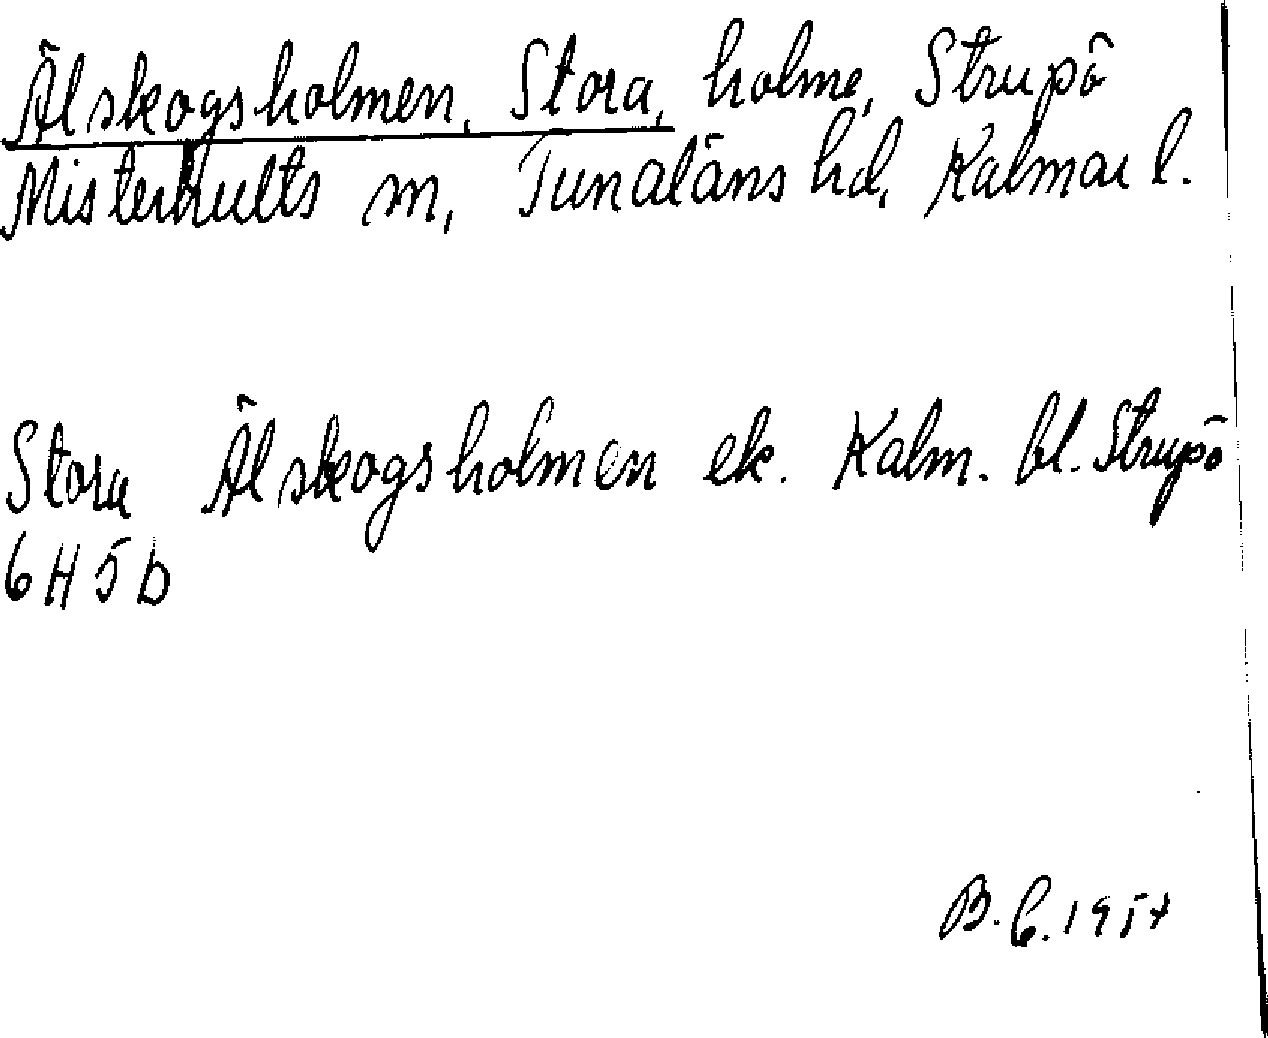 Älskogsholmen, Stora, holme, Strupö
Misterhults sn, Tunaläns hd, Kalmar l.
Stora Älskogsholmen ek. Kalm. bl. Strupö
6H5b
B.C. 1957